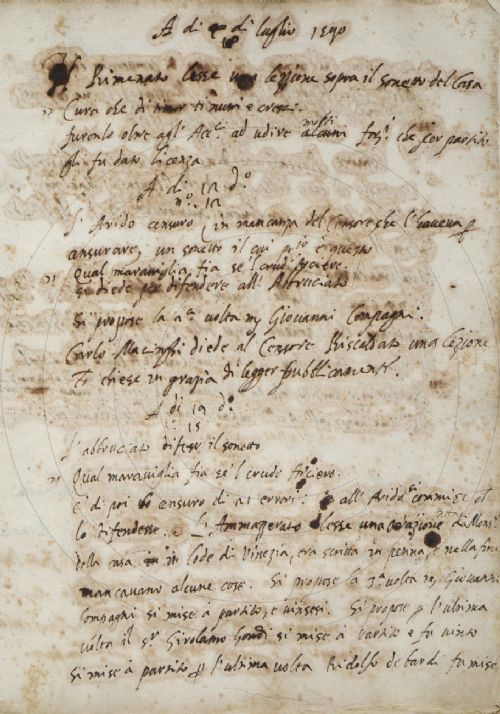 A di di luglio 1590
18
Il Rimenato lesse una lezzione sopra il sonetto del Casa
Cura che di timor ti nutri e cresci.
furonlo oltre agl' Acc.i ad udire molti alcuni che per partito
gli fu dato licenza
A di 12 d.o
n.o 12
L' Arido censurò in mancanza del Censore che l'haveva
censurare, un sonetto il cui p.io è questo
Qual maraviglia fia se l'crud' Arciere
si diede per difendere all' Abbruciato
Si propose la 2.a volta m. Giovanni Compagni.
Carlo Macinghi diede al Censore Riscaldato una Lezione
E chiese in grazia di legger pubblicamente.
A di 19 d.o
15
L' abbruciato difese il sonetto
Qual maraviglia fia se l' crudo Arciero.
E di poi censurò di errori. e all' Arido commise
lo difendesse. L' Ammazzerato lesse una orazione di Mons.
della casa in lode di Vinezia, era scritta in penna, e nella fine
mancavano alcune cose. Si propose la 3.a volta m. Giovanni
Compagni si mise à partito, e vinsesi. Si propose p l'ultima
volta il s.r Girolamo Gondi si mise à partito e fu vinto
si mise à partito p l'ultima volta Ridolfo de bardi fu mise